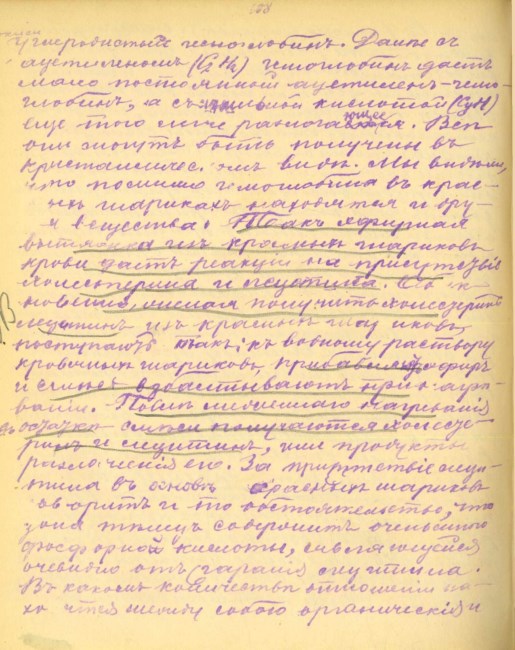 158
Углеродистый гемоглобинъ. Далѣе съ
ацетиленомъ (C₂H₂) гемоглобинъ даетъ
мало постоянной ацетиленъ-гемо-
глобинъ, а съ синильной кислотой (CyH)
еще того легче разлагающееся. Всѣ
они могутъ быть получены въ
кристаллическ. омъ видѣ. Мы видѣли,
что помимо гемоглобина въ крас-
ныхъ шарикахъ находятся и дру-
гія вещества. Такъ эфирная
вытяжка изъ красныхъ шариковъ
крови даетъ реакцію на присутствіе
холестерина и лецитина.
новенно, желая получить холестер
лецитинъ изъ красныхъ шариковъ,
поступаютъ такъ: къ водному раствору
кровяныхъ шариковъ, прибавляютъ эфиръ
и смѣсь взбалтываютъ при
ваніи. Послѣ
остатка смѣси получаются холесте-
ринъ и лецитинъ, или продукты
разложенія его. За присутствіе леци-
тина въ красныхъ шариковъ
говоритъ и то обстоятельство, что
зола содержитъ очень много
фосфорной кислоты, являющейся
очевидно отъ сгаранія лецитина.
Въ какомъ количественъ отношеніи на-
ходятся между собою органическія и